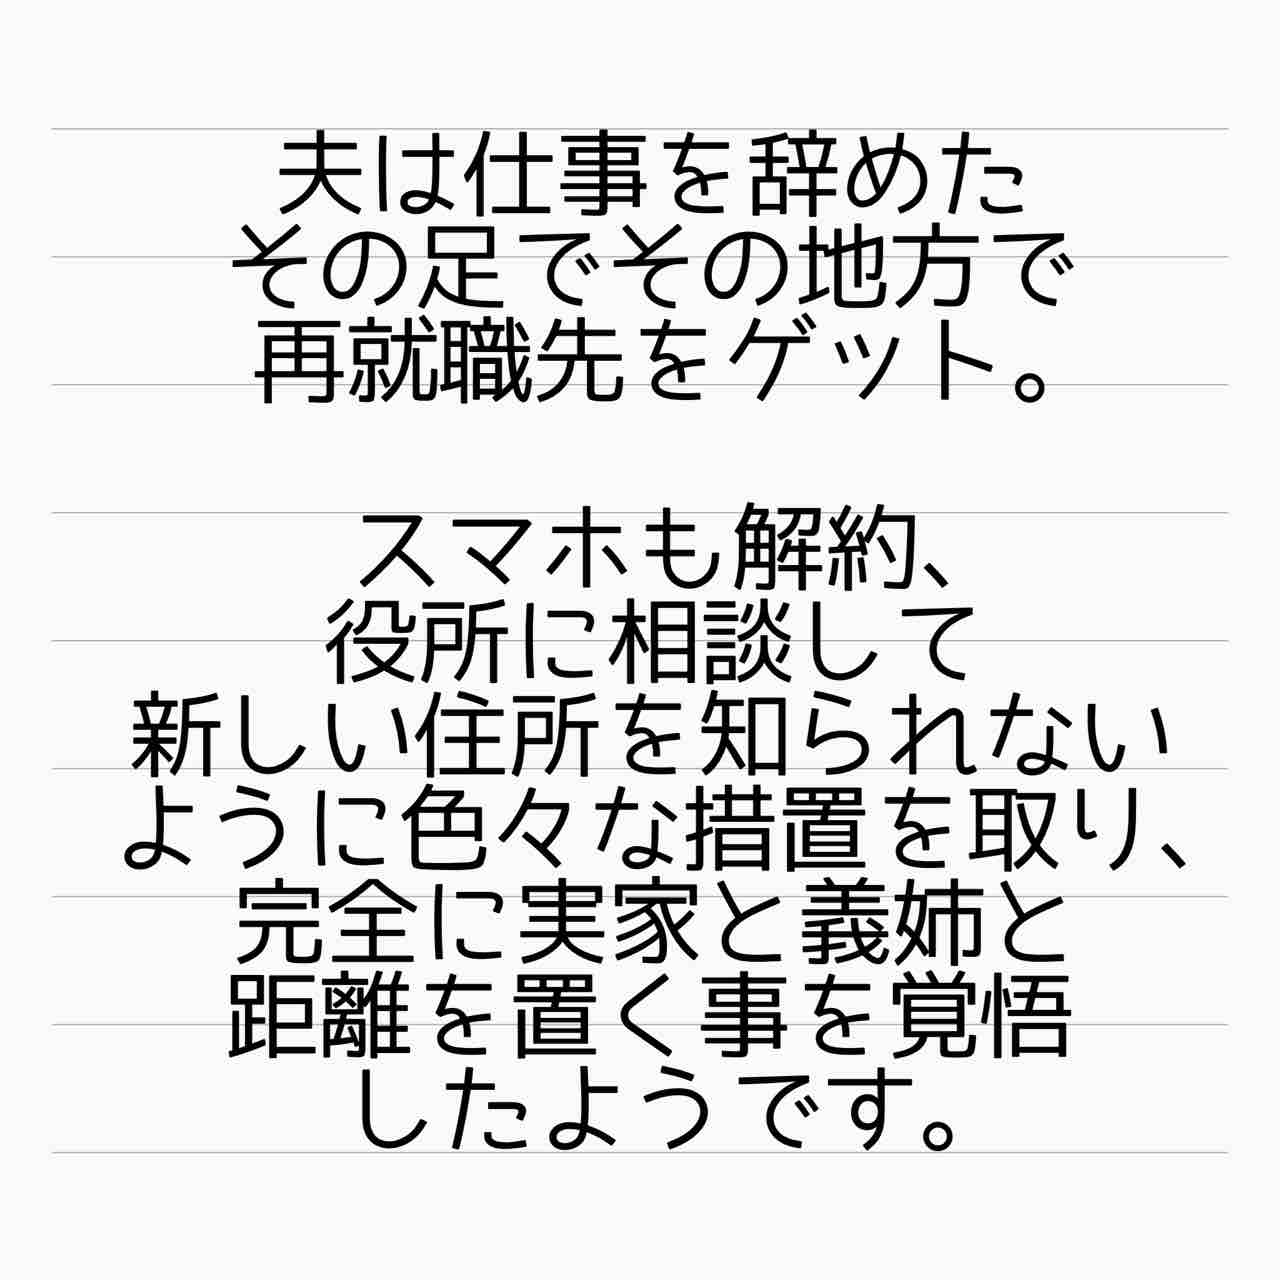 夫は仕事を辞めた
その足でその地方で
再就職先をゲット。
スマホも解約、
役所に相談して
新しい住所を知られない
ように色々な措置を取り、
完全に実家と義姉と
距離を置く事を覚悟
したようです。